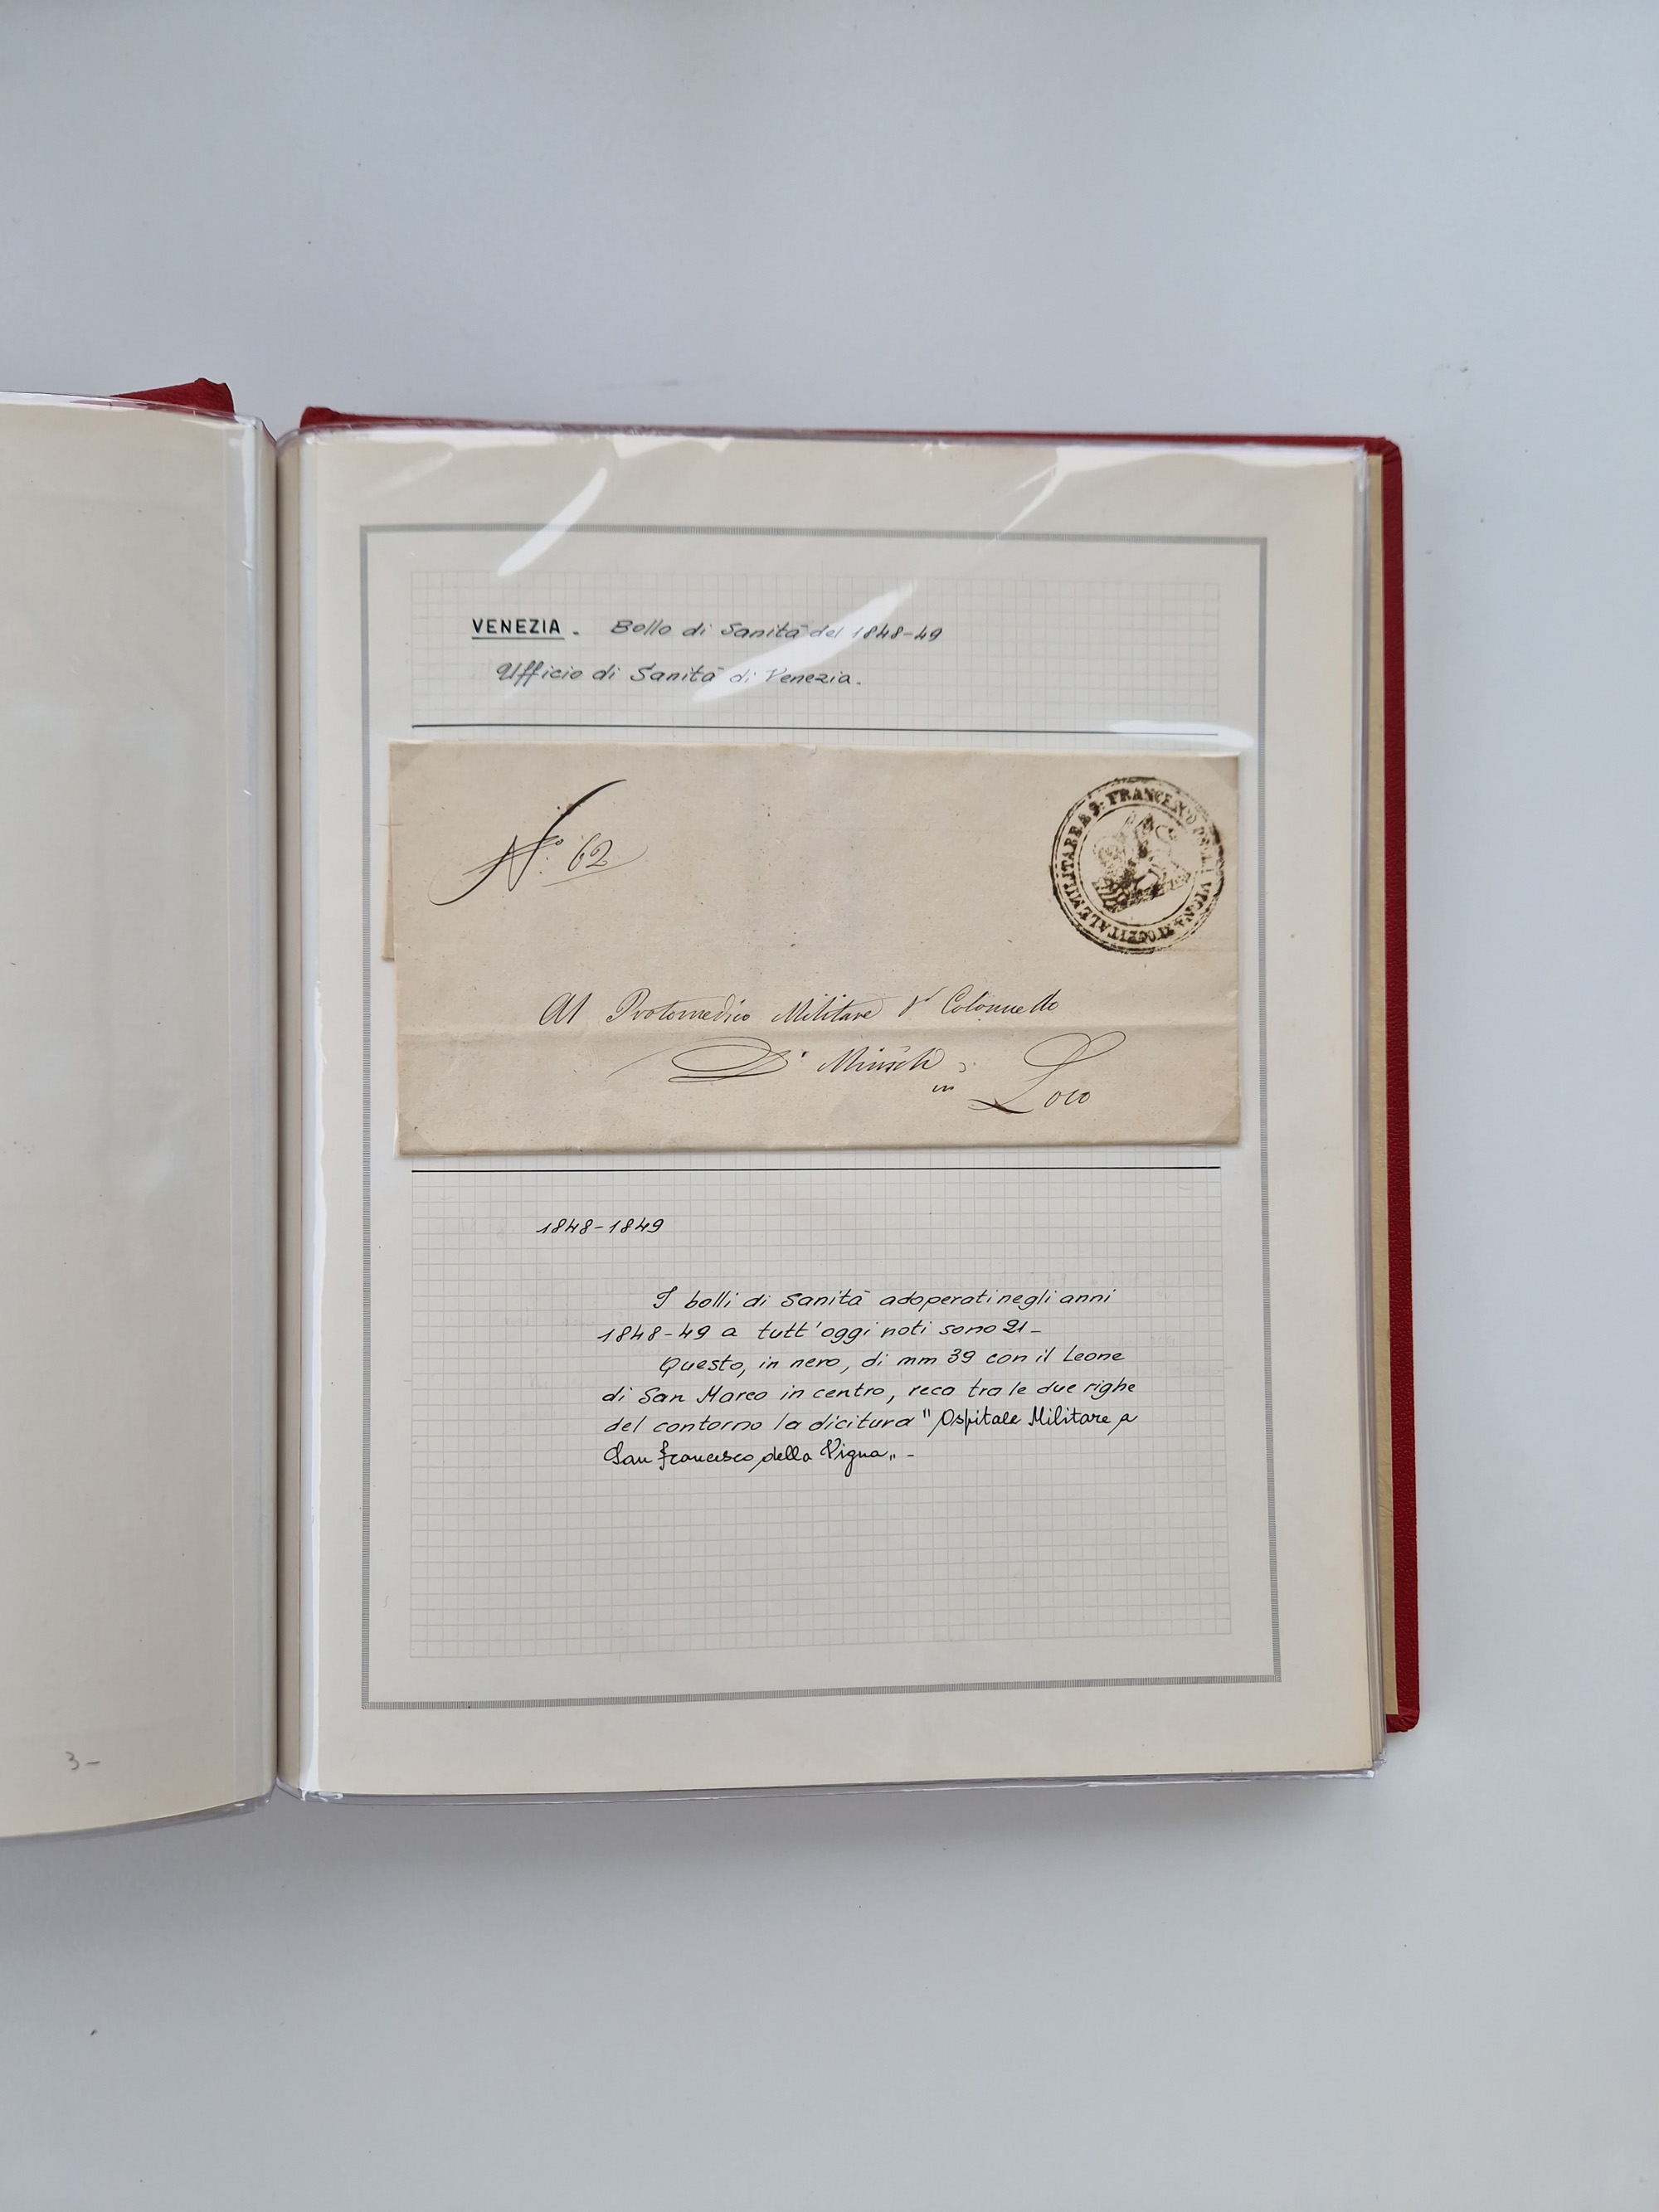 VENEZIA. Bollo di Sanità del 1848-49
Ufficio di Sanità di Venezia.
N.° 62
OSPITALE MILITARE A S. FRANCESCO DELLA VIGNA
Al Protomedico Militare Colonnello
D.r Minich
in Loco
1848-1849
I bolli di Sanità adoperati negli anni
1848-49 a tutt'oggi noti sono 21-
Questo, in nero, di mm 39 con il Leone
di San Marco in centro, reca tra le due righe
del contorno la dicitura "Ospitale Militare a
San Francesco della Vigna„-
3-